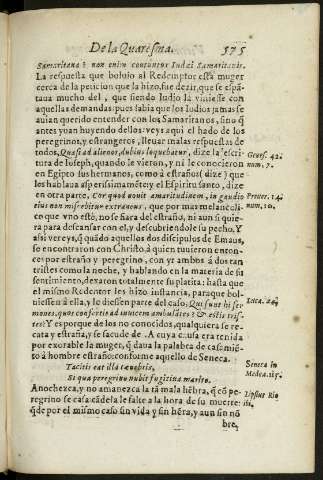 De la Quaresma. 575
Samaritana? non enim coutuntur Iudæi Samaritanis.
La respuesta que boluio al Redemptor esta muger
cerca de la peticion que la hizo, fue dezir, que se espã
taua mucho del, que siendo Iudio la viniesse con
aquellas demandas: pues sabia que los Iudios jamas se
auian querido entender con los Samaritanos, sino q̃
antes yuan huyendo dellos: veys aqui el hado de los
peregrinos, y estrangeros, lleuar malas respuestas de
todos. Quasi ad alienos, durius loquebatur, dize la escri
tura de Ioseph, quando le vieron, y ni le conocieron
en Egipto sus hermanos, como à estraños (dize) que
les hablaua asperissimamẽte; y el Espiritu santo, dize
en otra parte, Cor quod nouit amaritudinem, in gaudio
eius non miscebitur extraneus, que por mas melancoli-
co que vno estè, no se fiara del estraño, ni aun si quie-
ra para descansar con el, y descubriendole su pecho. Y
assi vereys, q̃ quãdo aquellos dos discipulos de Emaus,
se encontraron con Christo, à quien tuuieron enton-
ces por estraño y peregrino, con yr ambos à dos tan
tristes como la noche, y hablando en la materia de su
sentimiento, dexaron totalmente su platica: hasta que
el mismo Redentor les hizo instancia, para que bol-
uiessen à ella, y le diessen parte del caso, Qui sunt hi ser
mones, quos confertis ad inuicem ambulãtes? & estis tris-
tes? Y es porque de los no conocidos, qualquiera se re-
cata y estraña, y se sacude de. A cuya causa era tenida
por exorable la muger, q̃ daua la palabra de casamiẽ-
to à hombre estraño: conforme aquello de Seneca.
Tacitis eat illa tenebris,
Si qua peregrino nubit fugitiua marito.
Anochezca, y no amanezca la tã mala hẽbra, q̃ cõ pe
regrino se casa: cãdela le falte a la hora de su muerte:
q̃de por el mismo caso sin vida y sin hõra, y aun sin nõ
bre,
Genes. 42.
num. 7.
Prouer. 14.
num. 10.
Luca. 24.
Seneca in
Medea. 115.
Lipsius